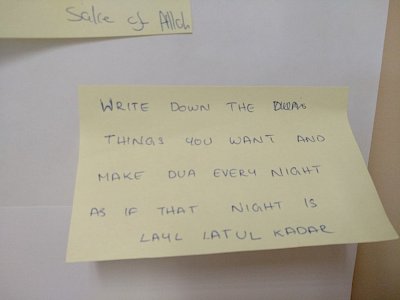 Sake of Allah
WRITE DOWN THE
THINGS YOU WANT AND
MAKE DUA EVERY NIGHT
AS IF THAT NIGHT IS
LAYL LATUL KADAR